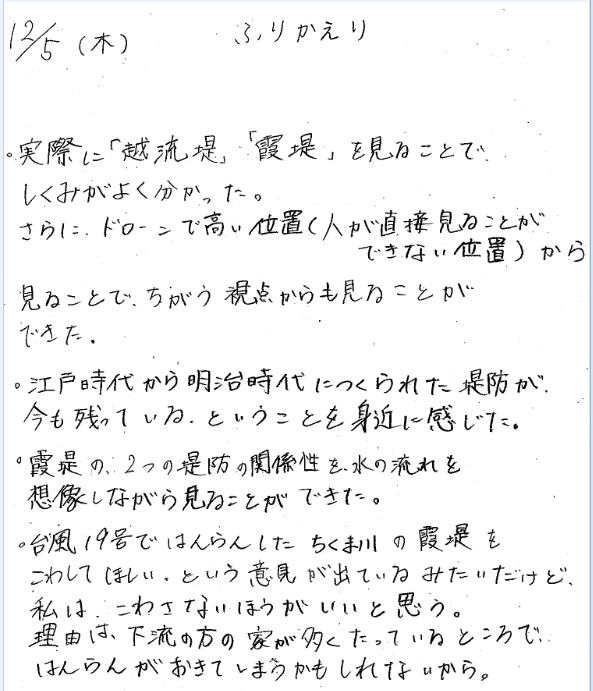 12/5（木） ふりかえり
。実際に「越流堤」「霞堤」を見ることで、
しくみがよく分かった。
さらに、ドローンで高い位置（人が直接見ることが
できない位置）から
見ることで、ちがう視点からも見ることが
できた。
。江戸時代から明治時代につくられた堤防が、
今も残っている、ということを身近に感じた。
。霞堤の、2つの堤防の関係性を、水の流れを
想像しながら見ることができた。
。台風19号ではんらんしたちくま川の霞堤を
こわしてほしい、という意見が出ているみたいだけど、
私は、こわさないほうがいいと思う。
理由は、下流の方の家が多くたっているところで、
はんらんがおきてしまうかもしれないから。